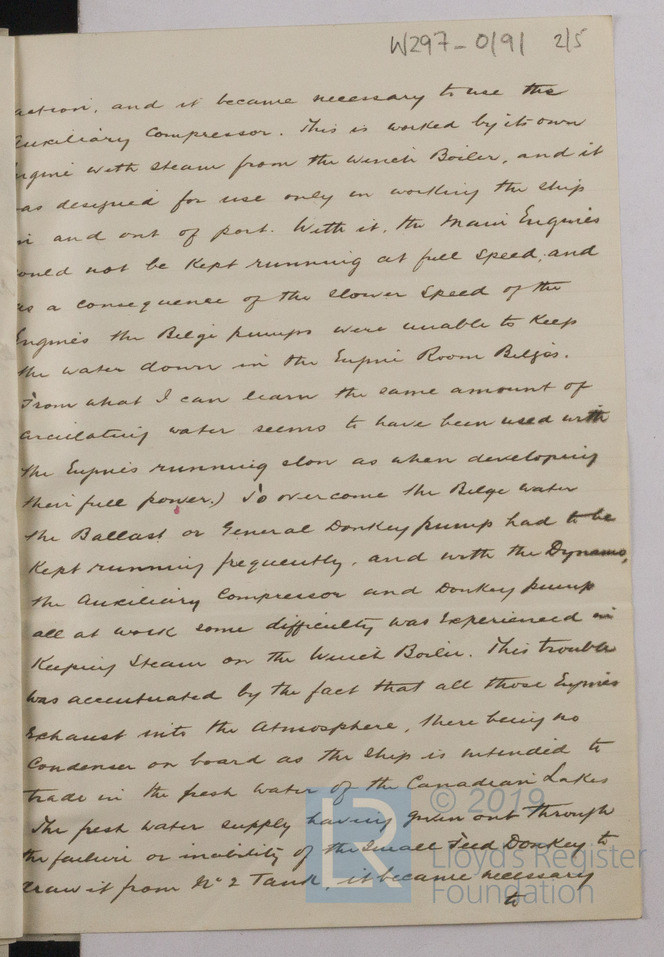 W297-0191 2/5
action, and it became necessary to use the
Auxiliary Compressor. This is worked by its own
Engine with steam from the Winch Boiler, and it
was designed for use only in working the ship
in and out of port. With it, the Main Engines
could not be kept running at full speed, and
as a consequence of the slower speed of the
Engines the Belge pumps were unable to keep
the water down in the Engine Room Belges.
From what I can learn the same amount of
circulating water seems to have been used with
the Engines running slow as when developing
their full power.) To overcome the Belge water
the Ballast or General Donkey pump had to be
kept running frequently, and with the Dynamo,
the Auxiliary Compressor and Donkey pump
all at work some difficulty was experienced in
keeping steam on the Winch Boiler. This trouble
was accentuated by the fact that all those Engines
Exhaust into the Atmosphere, there being no
Condenser on board as the ship is intended to
trade in the fresh water of the Canadian Lakes
The fresh water supply having given out through
the failure or inability of the small Feed Donkey to
draw it from No 2 Tank, it became necessary
to
LR
© 2019
Lloyd's Register
Foundation